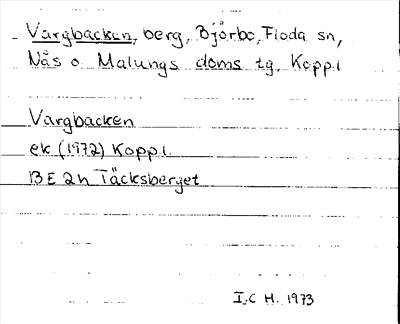 Vargbacken, berg, Björbo, Floda sn,
Nås o Malungs doms tg, Kopp.l
Vargbacken
ek (1972) Kopp.l.
13 E 2h Täcksberget
I.C H. 1973